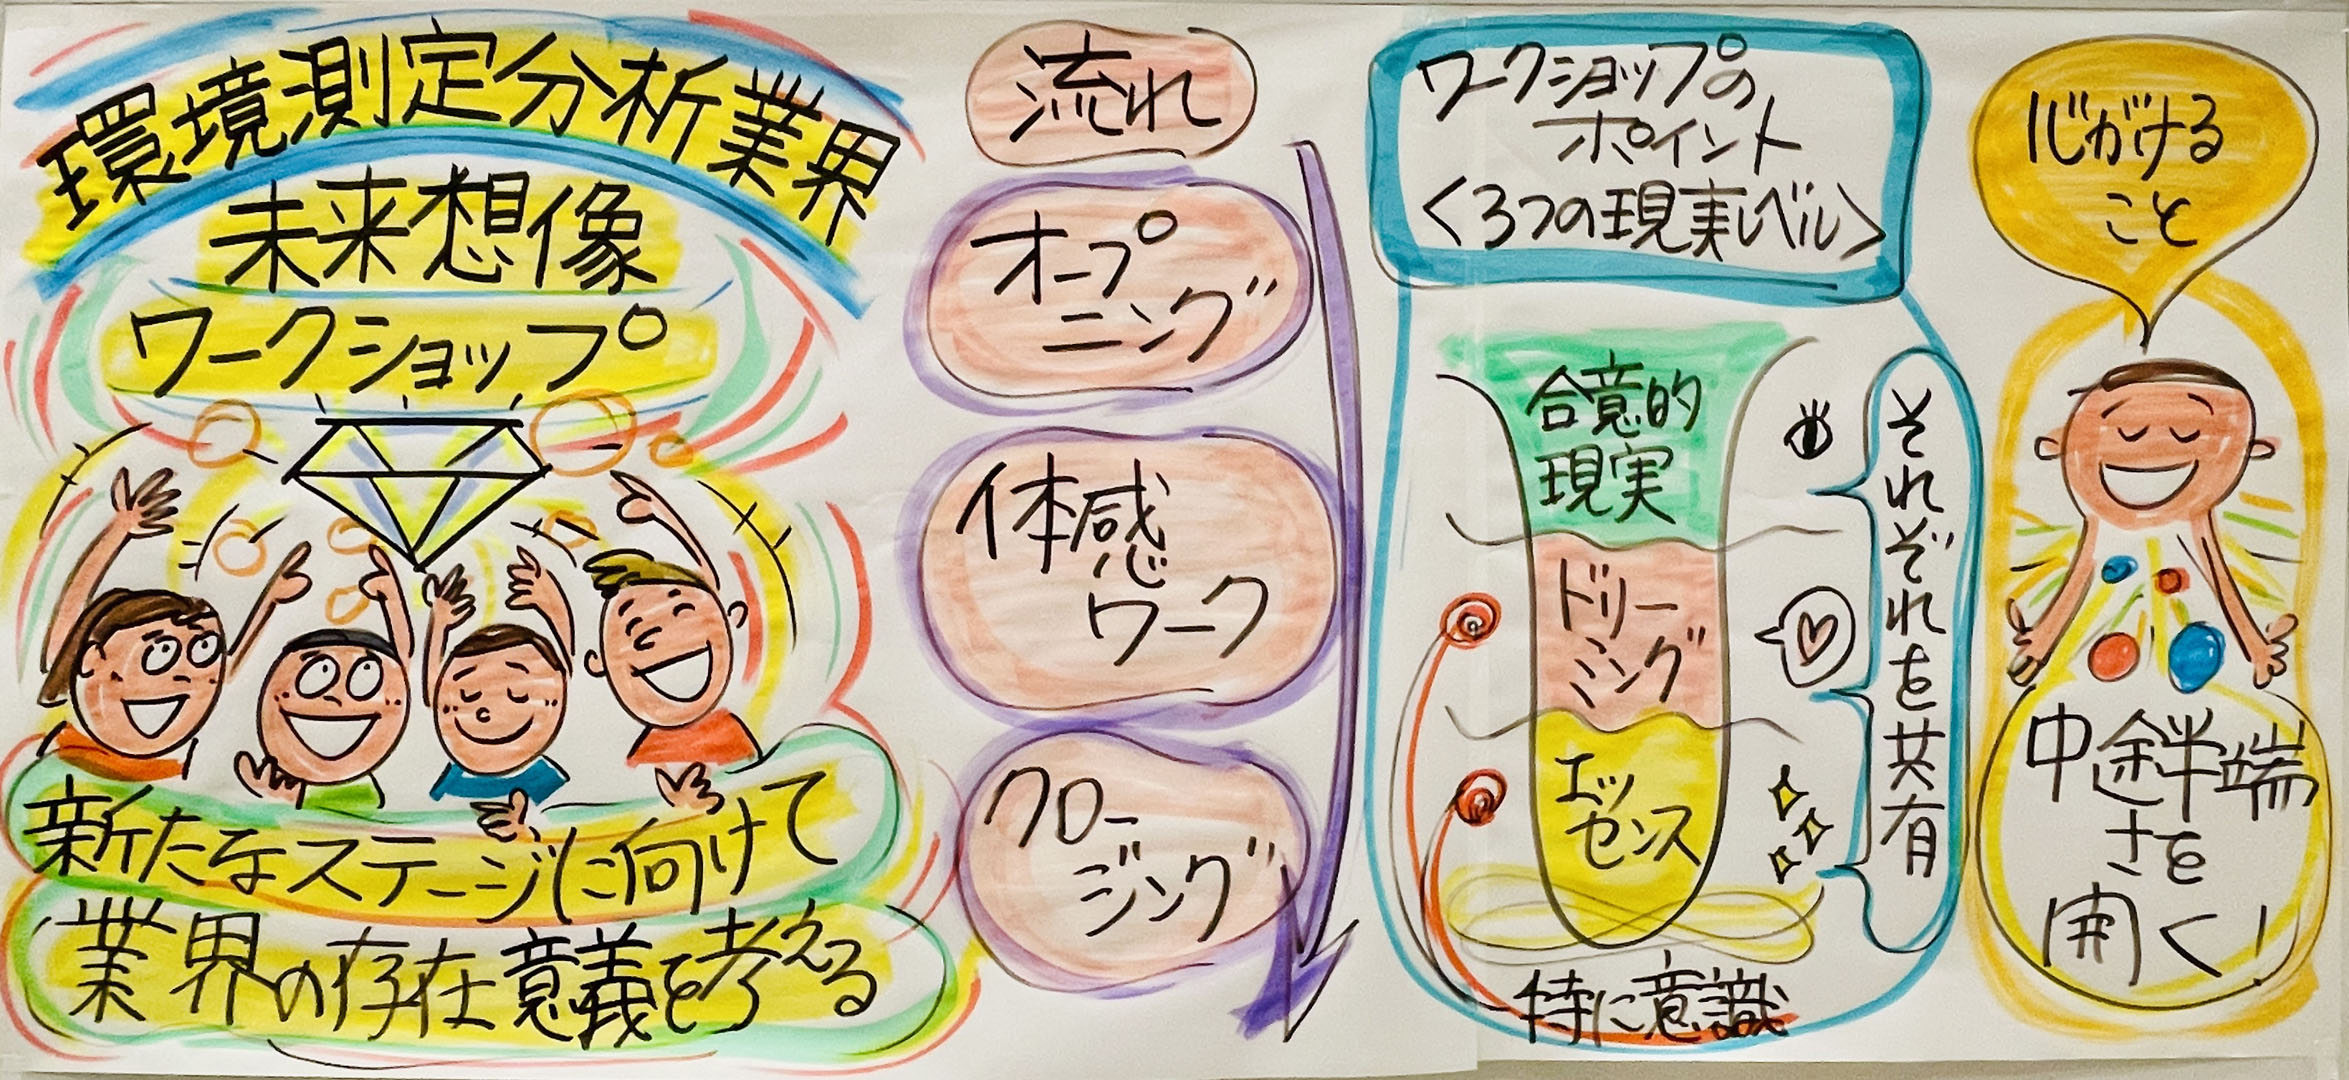 環境測定分析業界
未来想像
ワークショップ
新たなステージに向けて
業界の存在意義を考える
流れ
オープ
ニング
体感
ワーク
クロー
ジング
ワークショップの
ポイント
<3つの現実レベル>
合意的
現実
ドリー
ミング
エッ
センス
それぞれを共有
特に意識
心がける
こと
中途半端
さを
開く!